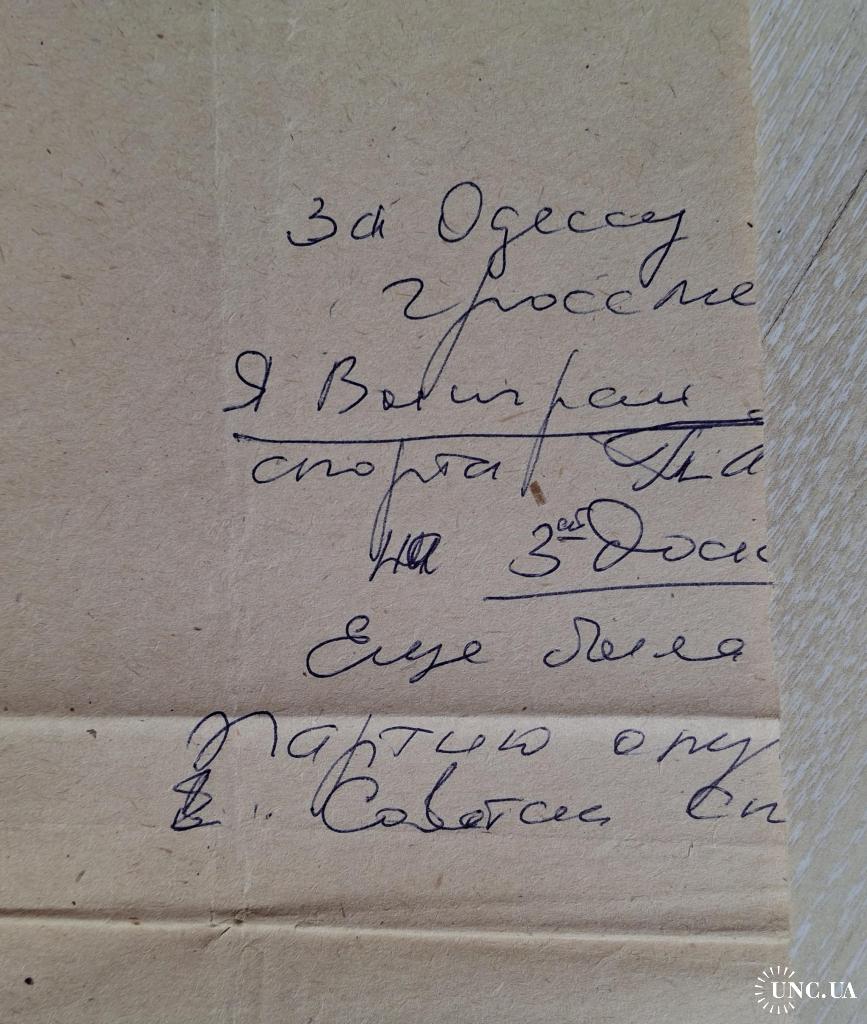 За Одессу
гроссме
Я Выиграл
спорта
на 3ей Доск
Еще была
Партию опу
в. Советск Сп
UNC.UA